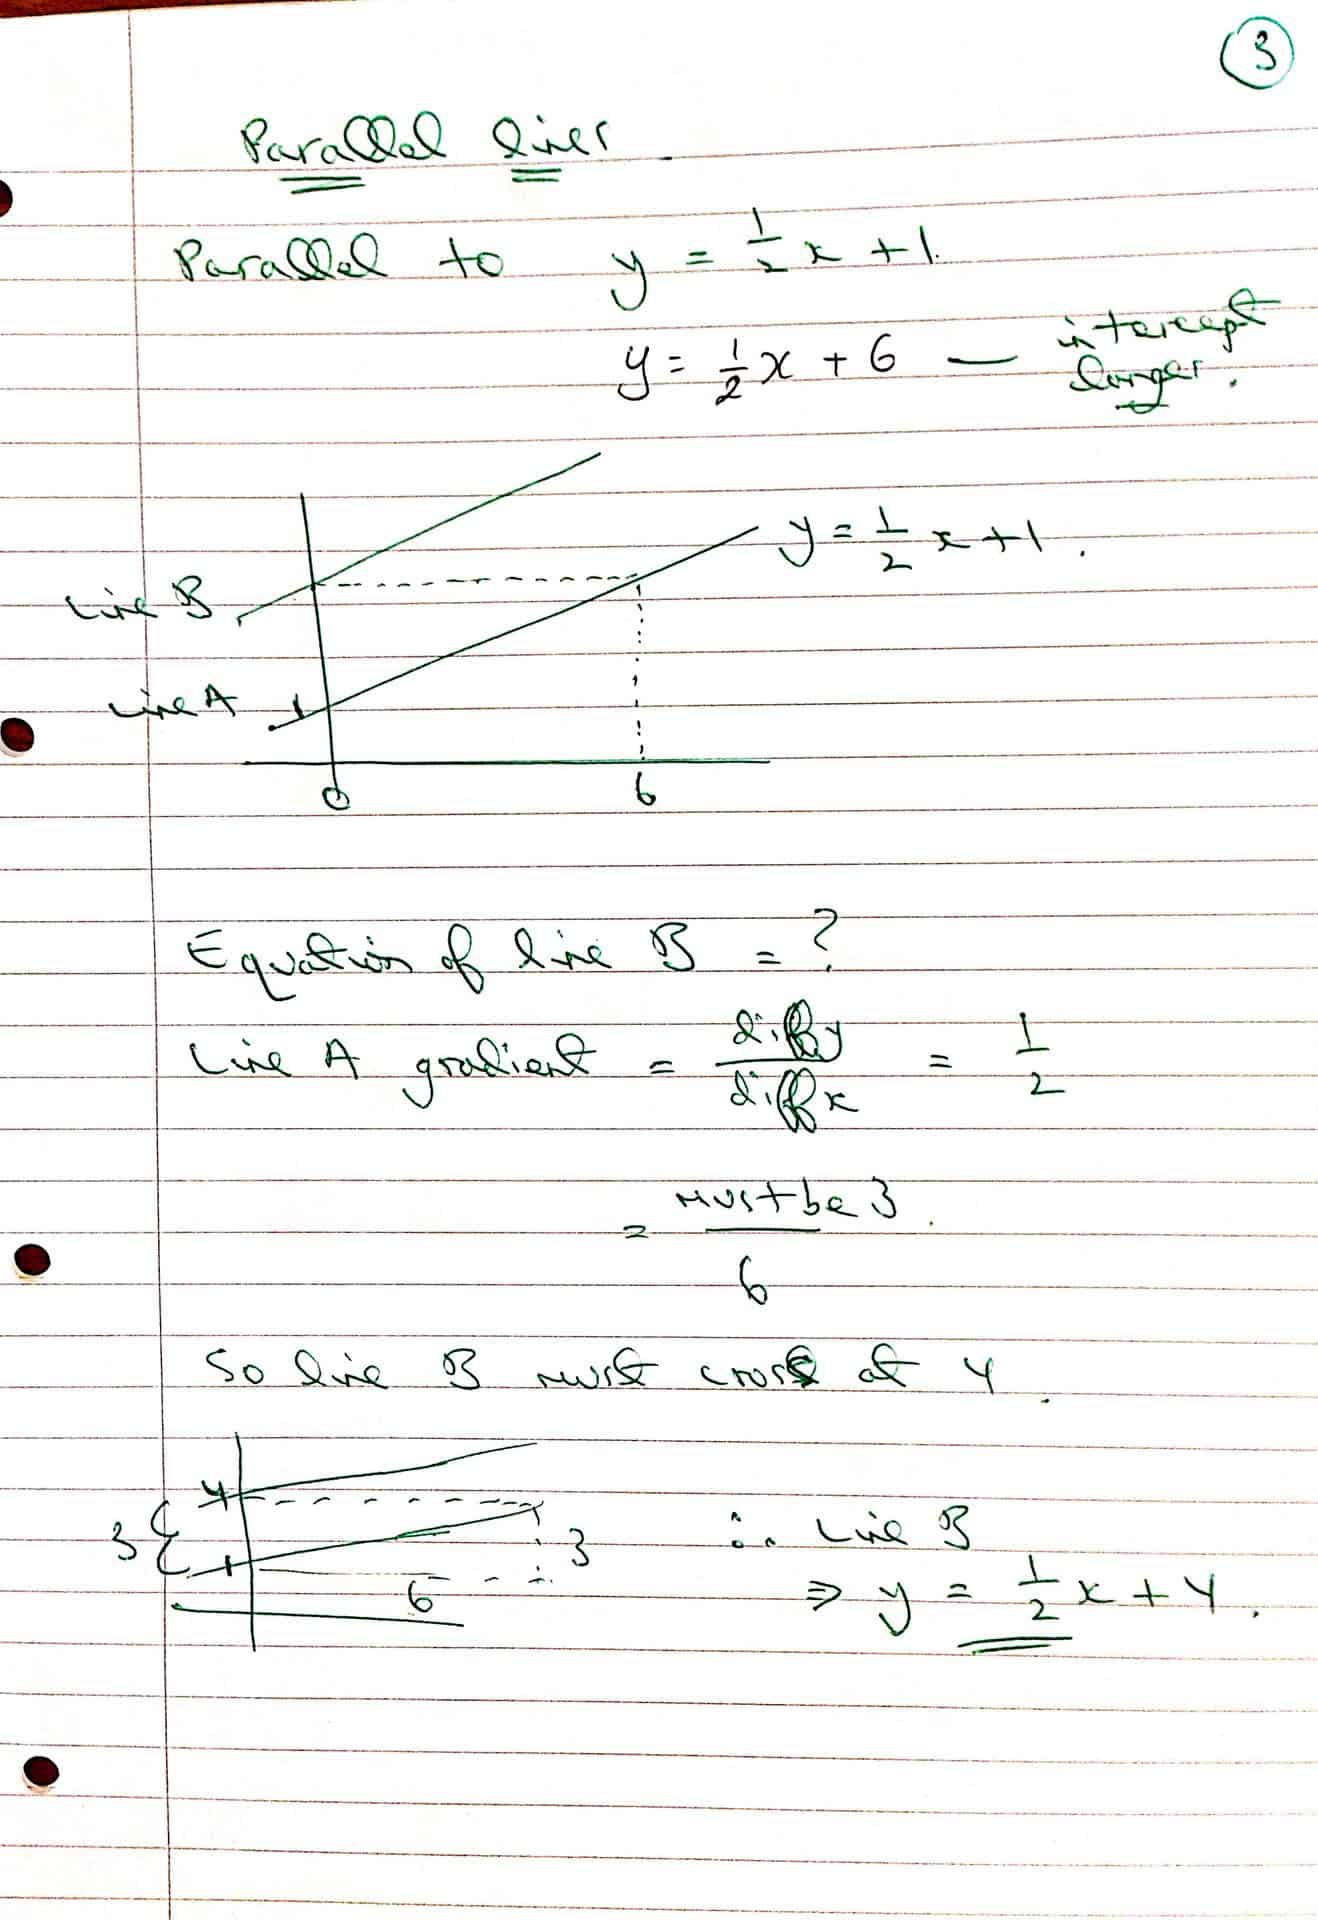 3
Parallel lines
Parallel to y = 1/2 x + 1.
y = 1/2 x + 6 — intercept
larger.
y = 1/2 x + 1.
Line B
Line A 1
0 6
Equation of line B = ?
Line A gradient = diff y / diff x = 1/2
= must be 3 / 6
So line B must cross at 4.
4
3 1 6 3
∴ Line B
⇒ y = 1/2 x + 4.